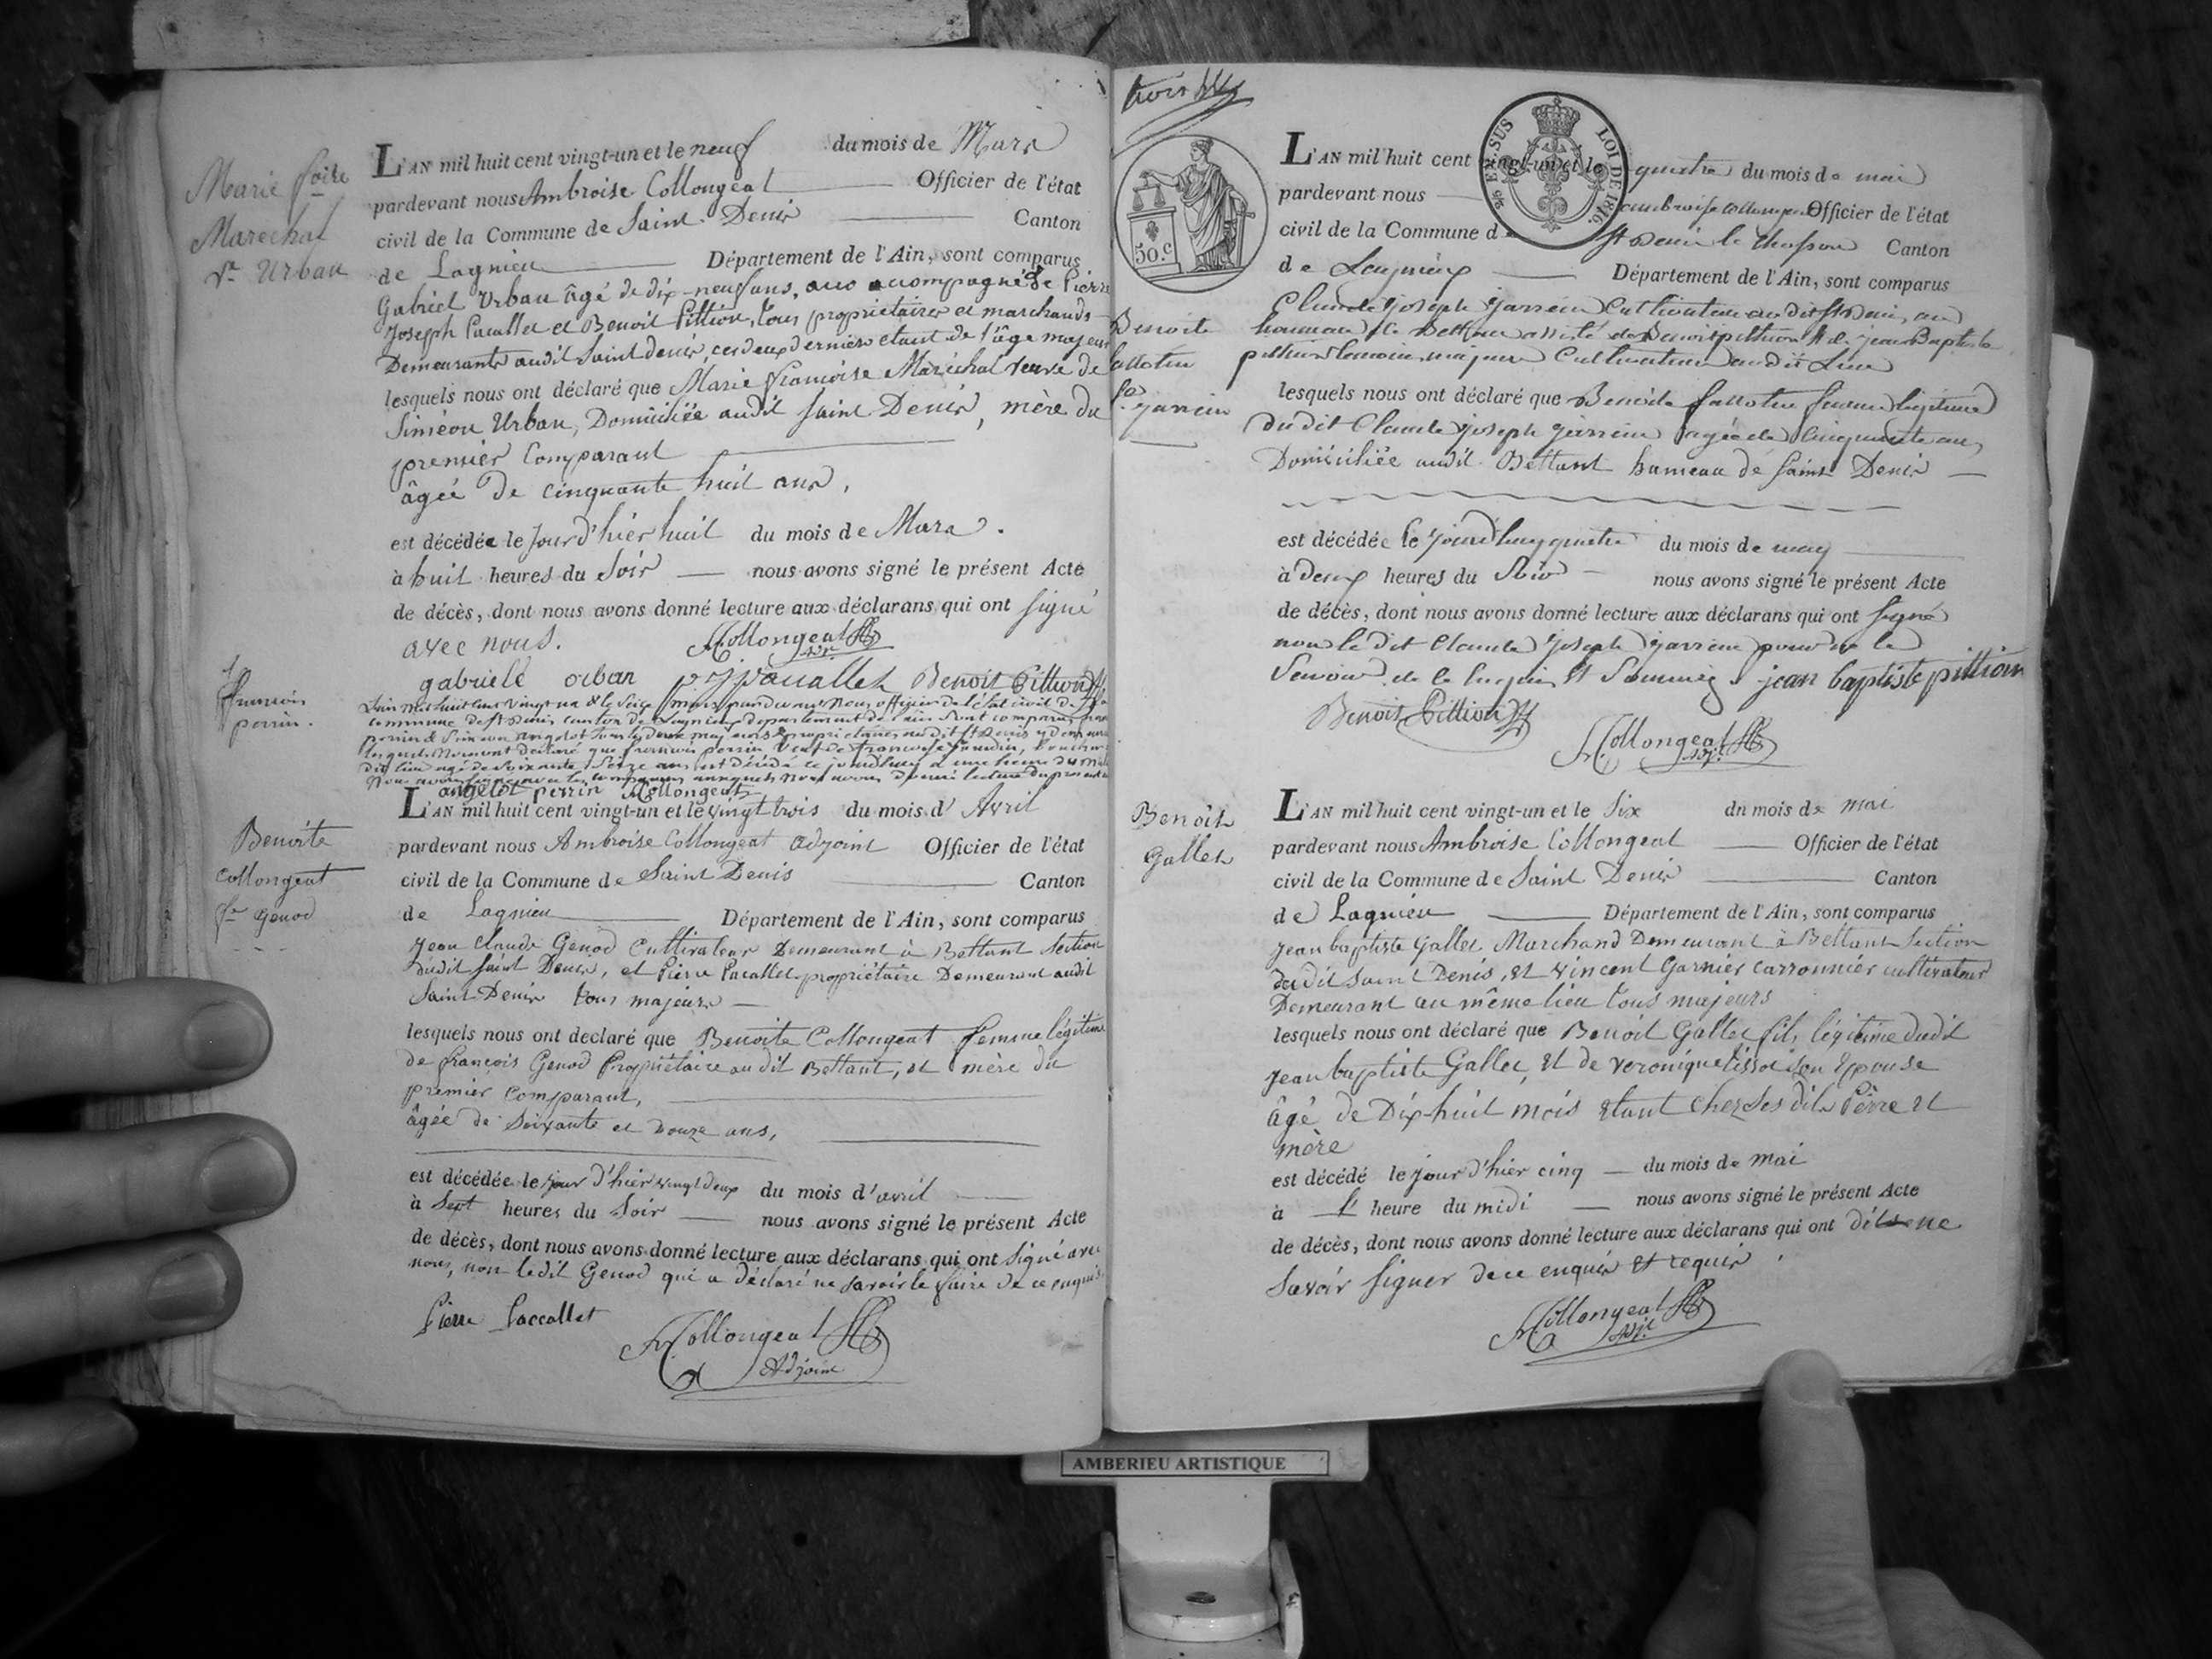 Marie foise
Maréchal
ve Urban
L'AN mil huit cent vingt-un et le neuf du mois de Mars
pardevant nous Ambroise Collongeat Officier de l'état
civil de la Commune de Saint Denis Canton
de Lagnieu Département de l'Ain, sont comparus
Gabriel Urban âgé de dix-neuf ans, accompagné de Pierre
Joseph Pacallet et Benoit Pittion, tous propriétaires et marchands
Demeurants audit Saint denis, ces deux derniers étant de l'âge majeur
lesquels nous ont déclaré que Marie françoise Maréchal veuve de
Siméon Urban, Domiciliée audit saint Denis, mère du
premier Comparant
âgée de cinquante huit ans,
est décédée le Jour d'hier huit du mois de Mars.
à huit heures du Soir nous avons signé le présent Acte
de décès, dont nous avons donné lecture aux déclarans qui ont signé
avec nous. Collongeat
gabriell orban pjpacallet Benoit Pittion
françois
perrin.
L'an mil huit cent vingt un & le seize mars pardevant Nous officier de l'état civil de la
commune de St Denis canton de Lagnieu departement de l'ain sont comparus
perrin & Simeon angelot tous les deux majeurs & propriétaires audit St Denis y demeurant
lesquels Nous ont déclaré que françois perrin veuf de françoise
dit lieu agé de soixante Seize ans est décédé ce jourdhuy a une heure du
Nous avons signé avec les comparans auxquels nous avons donné lecture du present
angelot perrin Collongeat
Benoite
Collongeat
fe Genod
L'AN mil huit cent vingt-un et le vingt trois du mois d'Avril
pardevant nous Ambroise Collongeat adjoint Officier de l'état
civil de la Commune de Saint Denis Canton
de Lagnieu Département de l'Ain, sont comparus
Jean Claude Genod Cultivateur Demeurant à Bettant Section
dudit saint Denis, et Pierre Pacallet propriétaire Demeurant audit
Saint Denis tous majeurs
lesquels nous ont declaré que Benoite Collongeat femme légitime
de françois Genod Propriétaire au dit Bettant, et mère du
premier Comparant,
âgée de Soixante et douze ans,
est décédée le jour d'hier vingt deux du mois d'avril
à Sept heures du Soir nous avons signé le présent Acte
de décès, dont nous avons donné lecture aux déclarans qui ont signé avec
nous, non ledit Genod qui a déclaré ne savoir le faire de ce enquis
Pierre Paccallet Collongeat
Adjoint
trois
50.c
EN SUS
LOI DE 1816.
Benoite
fallotin
fe
jarrein
L'AN mil huit cent vingt-un et le quatre du mois de mai
pardevant nous ambroise collongeat Officier de l'état
civil de la Commune d St Denis le Chosson Canton
de Lagnieux Département de l'Ain, sont comparus
Claude joseph jarrein Cultivateur au dit St Denis, au
hameau de Bettan assisté de Benoit pittion & de jean Baptiste
pittion temoins majeurs Cultivateurs audit Lieu
lesquels nous ont déclaré que Benoite fallotin femme legitime
du dit Claude joseph jarrein agée de cinquante ans
Domiciliée audit Bettant hameau de saint Denis
est décédée le jourdhuy quatre du mois de may
à deux heures du Soir nous avons signé le présent Acte
de décès, dont nous avons donné lecture aux déclarans qui ont signé
non le dit Claude joseph jarrein pour ne le
Savoir de ce enquis & Sommé. jean baptiste pittion
Benoit Pittion
Collongeat
adj.t
Benoit
Gallet
L'AN mil huit cent vingt-un et le Six du mois de mai
pardevant nous Ambroise Collongeat Officier de l'état
civil de la Commune de Saint Denis Canton
de Lagnieu Département de l'Ain, sont comparus
Jean baptiste Gallet Marchand Demeurant à Bettant Section
du dit Saint Denis, et Vincent Garnier carronnier cultivateur
Demeurant au même lieu tous majeurs
lesquels nous ont déclaré que Benoit Gallet fils légitime dudit
Jean baptiste Gallet, et de veronique tissot son Epouse
âgé de Dix-huit mois étant chez ses dits Père et
mère
est décédé le jour d'hier cinq du mois de mai
à 1 heure du midi nous avons signé le présent Acte
de décès, dont nous avons donné lecture aux déclarans qui ont dit ne
Savoir Signer de ce enquis et requis.
Collongeat
Adj.t
AMBERIEU ARTISTIQUE